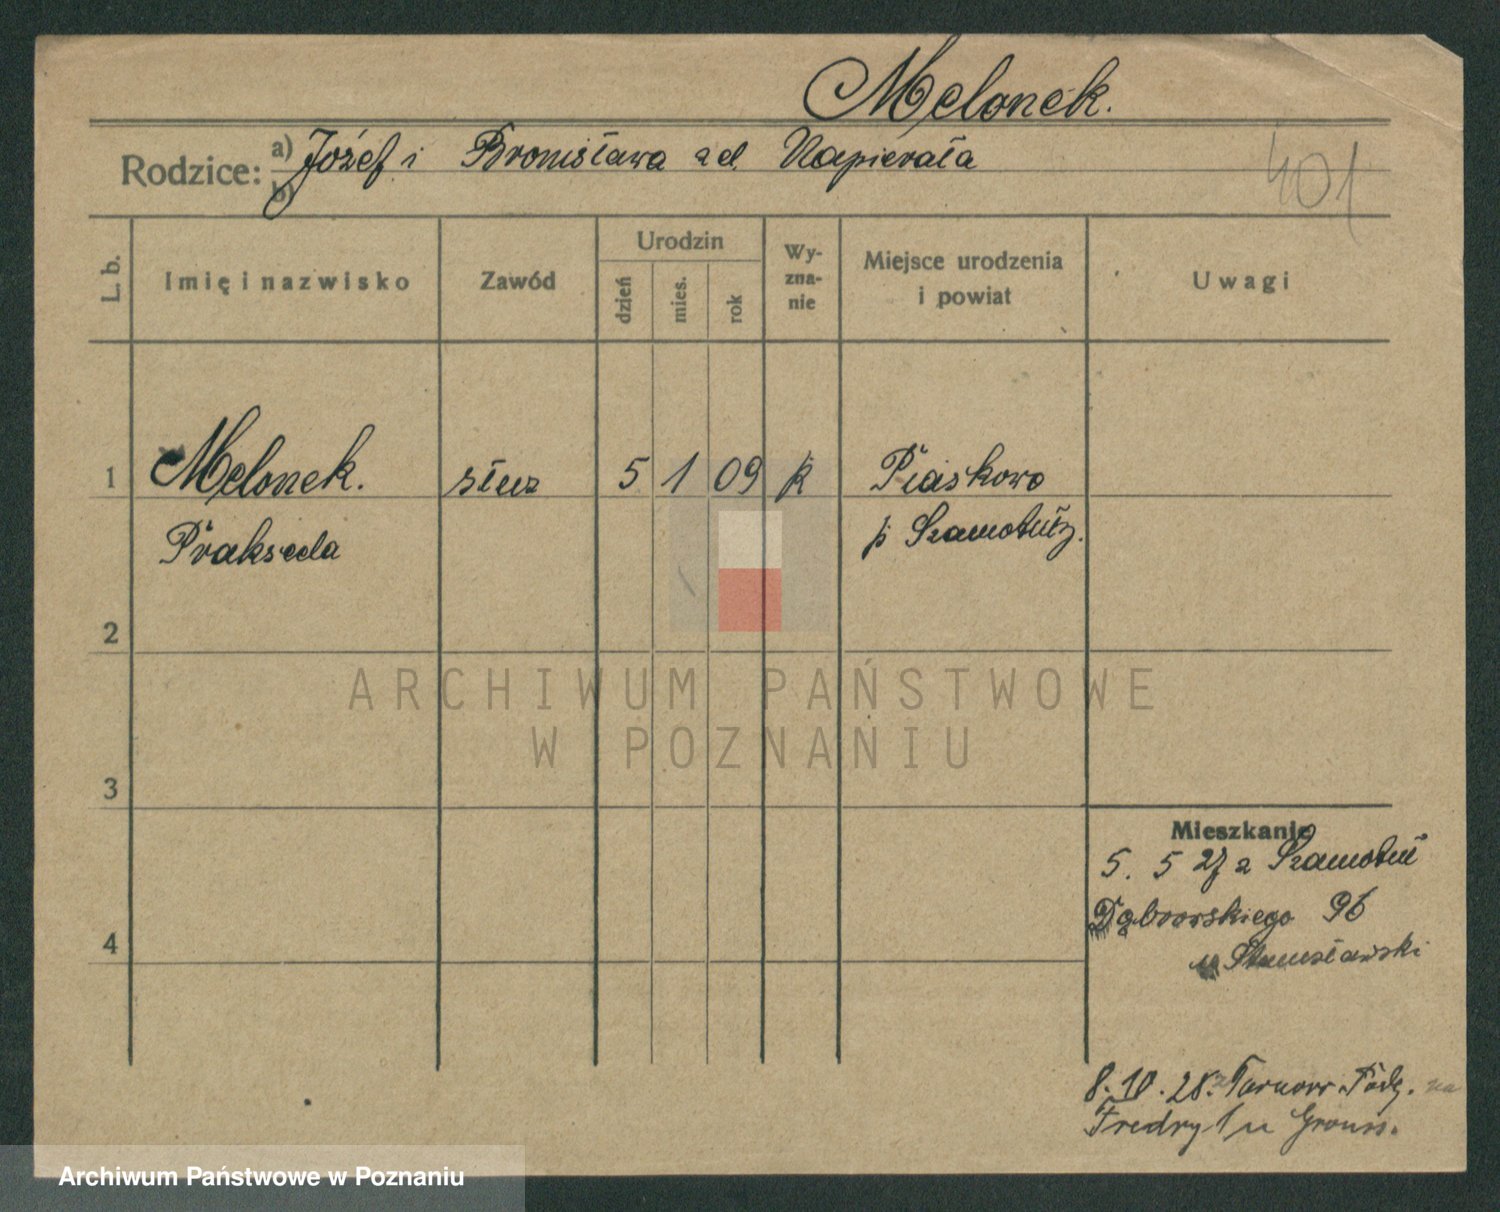 Melonek.
Rodzice: a) Józef i Bronisława zd. Napierała
b)
401
L. b.
Imię i nazwisko
Zawód
Urodzin
dzień
mies.
rok
Wy-
zna-
nie
Miejsce urodzenia
i powiat
Uwagi
1 Melonek. służ 5 1 09 k Piaskowo
Prakseda p Szamotuły.
2
3
4
ARCHIWUM PAŃSTWOWE
W POZNANIU
Mieszkanie
5. 5 27 z Szamotuł
Dąbrowskiego 96
u Stanisławski
8. 10. 28. Tarnow. Podg. na
Fredry 1 u
Archiwum Państwowe w Poznaniu